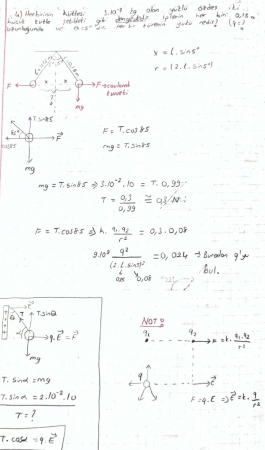 4) Her birinin kütlesi 3.10⁻² kg olan yüklü özdeş iki
küçük küre şekildeki gibi dengededir. İplerin her biri 0,15 m
uzunluğunda ve θ=5° dir. Her bir kürenin yükü nedir? (q=?
x = l.sin5°
r = (2.l.sin5°)
F
x
x
F → coulomb
kuvveti
mg
T.sin85
85°
F
cos85
mg
F = T.cos85
mg = T.sin85
mg = T.sin85 ⇒ 3.10⁻².10 = T. 0,99
T = 0,3/0,99 ≅ 0,3 N
F = T.cos85 ⇒ k. q₁.q₂/r² = 0,3.0,08
9.10⁹ q²/(2.l.sin5)² = 0,024 → Buradan q'yu
bul.
0,15 0,08
T T.sinα
q.E = F
mg
T.sinα = mg
T.sinα = 2.10⁻².10
T = ?
T.cosα = q.E
NOT:
q₁ q₂ F = k. q₁.q₂/r²
q E
F = q.E ⇒ E = k. q/r²